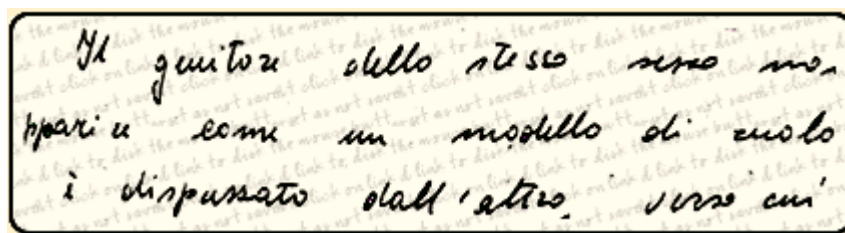 Il genitore dello stesso sesso non
ppari e come un modello di ruolo
è disprezzato dall'altro, verso cui